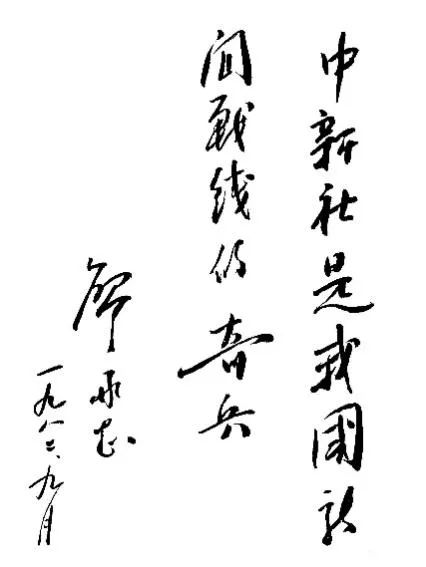 中新社是我国新
闻战线的奇兵
廖承志
一九八二、九月